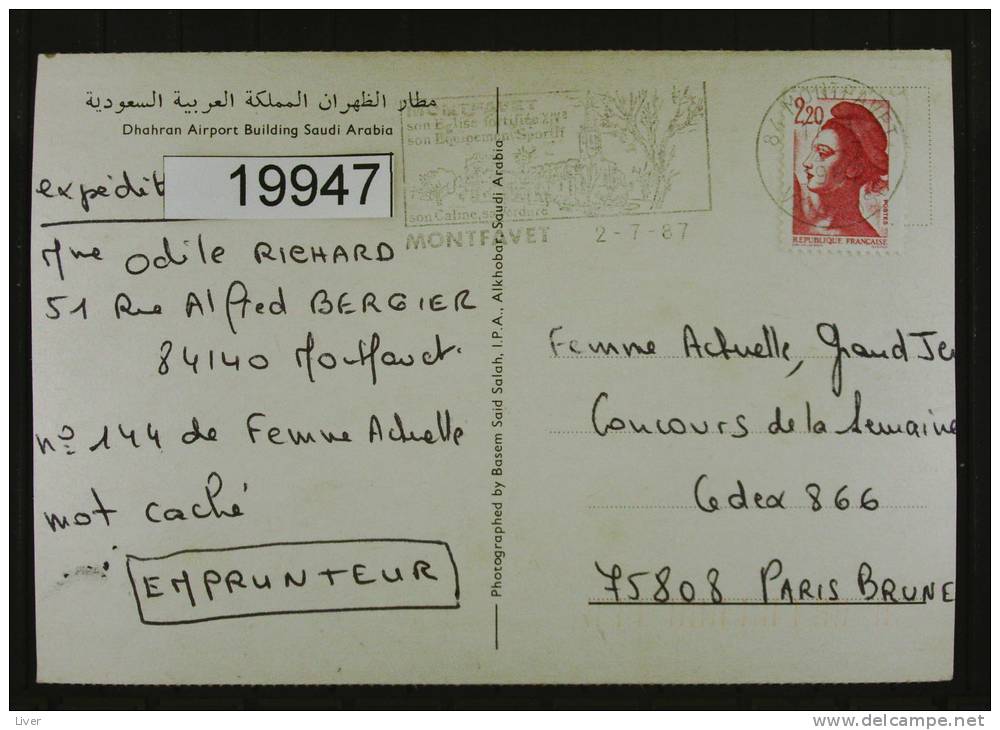 مطار الظهران المملكة العربية السعودية
Dhahran Airport Building Saudi Arabia
expédit
19947
Mme Odile RICHARD
51 Rue Alfred BERGIER
84140 Montfavet
n° 144 de Femme Actuelle
mot caché
EMPRUNTEUR
Photographed by Basem Said Salah, I.P.A., Alkhobar, Saudi Arabia
son Eglise fortifiée
son Equipement Sportif
son Calme, sa Verdure
MONTFAVET 2-7-87
84 MONTFAVET
2,20
POSTES
REPUBLIQUE FRANÇAISE
Femme Actuelle, Grand Jeu
Concours de la Semaine
Cedex 866
75808 PARIS BRUNE
Liver
www.delcampe.net